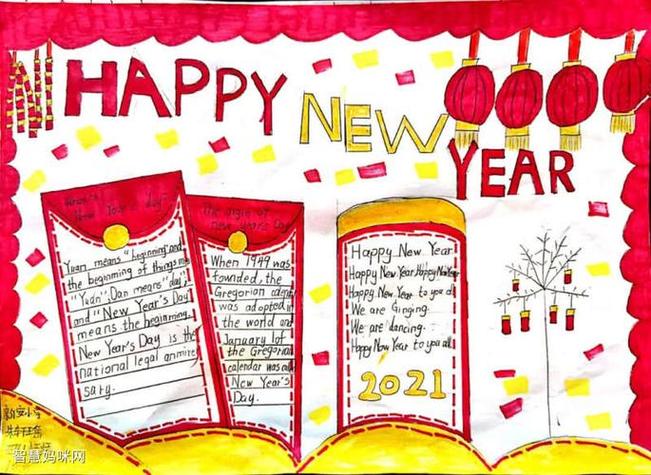 HAPPY
NEW
YEAR
New Year's day
The origin of
new years Day
Yuan means "beginning" and
the beginning of things
"Yuan". Dan means "day",
and "New Year's Day
means the beginning.
New Year's Day is the
national legal annive
sary.
When 1949 was
founded, the
Gregorian
was adopted in
the world and
January 1 of
the Gregorian
calendar was
New Year's
Day.
Happy New Year
Happy New Year, Happy New Year
Happy New Year to you all
We are singing.
We are dancing.
Happy New Year to you all
2021
智慧妈咪网